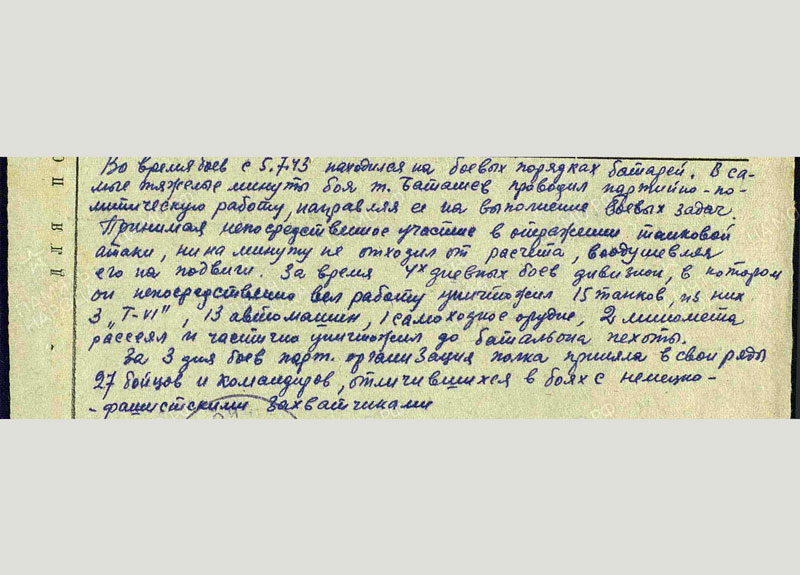 Во время боев с 5.7.43 находился на боевых порядках батарей. В са-
мые тяжелые минуты боя т. Баташев проводил партийно-по-
литическую работу, направляя ее на выполнение боевых задач.
Принимая непосредственное участие в отражении танковой
атаки, ни на минуту не отходил от расчета, воодушевляя
его на подвиги. За время 4х дневных боев дивизион, в котором
он непосредственно вел работу уничтожил 15 танков, из них
3 "Т-VI", 13 автомашин, 1 самоходное орудие, 2 миномета
рассеял и частично уничтожил до батальона пехоты.
За 3 дня боев парт. организация полка приняла в свои ряды
27 бойцов и командиров, отличившихся в боях с немецко-
-фашистскими захватчиками
ДЛЯ П